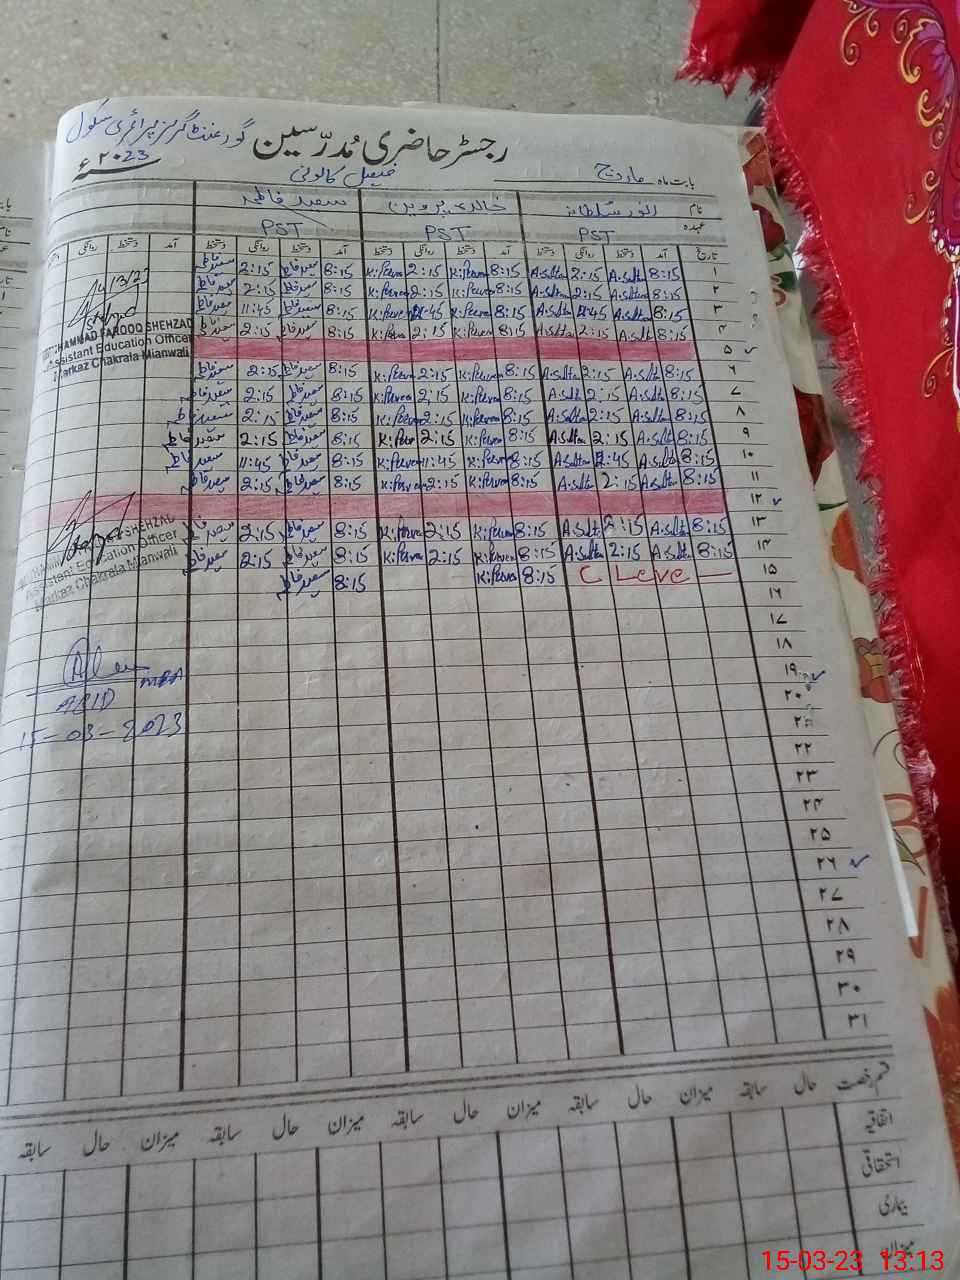 گورنمنٹ گرلز پرائمری سکول
رجسٹر حاضری مُدرّسین
۲۰23ء
فیصل کالونی
بابت ماہ مارچ
نام انور سُلطانہ خالدہ پروین سعید فاطمہ
عہدہ PST PST PST
تاریخ آمد دستخط روانگی دستخط آمد دستخط روانگی دستخط آمد دستخط روانگی دستخط آمد دستخط روانگی
۱ 8:15 A.Sultan 2:15 A.Sultan 8:15 K:Perveen 2:15 K:Perveen 8:15 سعید فاطمہ 2:15 سعید فاطمہ
۲ 8:15 A.Sultan 2:15 A.Sultan 8:15 K:Perveen 2:15 K:Perveen 8:15 سعید فاطمہ 2:15 سعید فاطمہ
۳ 8:15 A.Sultan 11:45 A.Sultan 8:15 K:Perveen 11:45 K:Perveen 8:15 سعید فاطمہ 11:45 سعید فاطمہ
۴ 8:15 A.Sultan 2:15 A.Sultan 8:15 K:Perveen 2:15 K:Perveen 8:15 سعید فاطمہ 2:15 سعید فاطمہ
۵
۶ 8:15 A.Sultan 2:15 A.Sultan 8:15 K:Perveen 2:15 K:Perveen 8:15 سعید فاطمہ 2:15 سعید فاطمہ
۷ 8:15 A.Sultan 2:15 A.Sultan 8:15 K:Perveen 2:15 K:Perveen 8:15 سعید فاطمہ 2:15 سعید فاطمہ
۸ 8:15 A.Sultan 2:15 A.Sultan 8:15 K:Perveen 2:15 K:Perveen 8:15 سعید فاطمہ 2:15 سعید فاطمہ
۹ 8:15 A.Sultan 2:15 A.Sultan 8:15 K:Perveen 2:15 K:Perveen 8:15 سعید فاطمہ 2:15 سعید فاطمہ
۱۰ 8:15 A.Sultan 11:45 A.Sultan 8:15 K:Perveen 11:45 K:Perveen 8:15 سعید فاطمہ 11:45 سعید فاطمہ
۱۱ 8:15 A.Sultan 2:15 A.Sultan 8:15 K:Perveen 2:15 K:Perveen 8:15 سعید فاطمہ 2:15 سعید فاطمہ
۱۲
۱۳ 8:15 A.Sultan 2:15 A.Sultan 8:15 K:Perveen 2:15 K:Perveen 8:15 سعید فاطمہ 2:15 سعید فاطمہ
۱۴ 8:15 A.Sultan 2:15 A.Sultan 8:15 K:Perveen 2:15 K:Perveen 8:15 سعید فاطمہ 2:15 سعید فاطمہ
۱۵ C Leve 8:15 K:Perveen 8:15 سعید فاطمہ
۱۶
۱۷
۱۸
۱۹
۲۰
۲۱
۲۲
۲۳
۲۴
۲۵
۲۶
۲۷
۲۸
۲۹
۳۰
۳۱
MUHAMMAD FAROOQ SHEHZAD
Assistant Education Officer
Markaz Chakrala Mianwali
SHEHZAD
Assistant Education Officer
Markaz Chakrala Mianwali
ABID MEA
15-03-2023
قسم رخصت حال سابقہ میزان حال سابقہ میزان حال سابقہ میزان حال سابقہ میزان حال سابقہ
اتفاقیہ
استحقاقی
بیماری
میزان
15-03-23 13:13